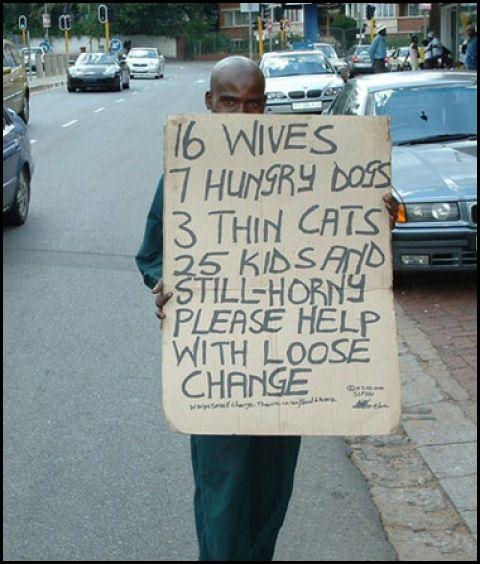 16 WIVES
7 HUNGRY DOGS
3 THIN CATS
25 KIDS AND
STILL-HORNY
PLEASE HELP
WITH LOOSE
CHANGE
SIPHO